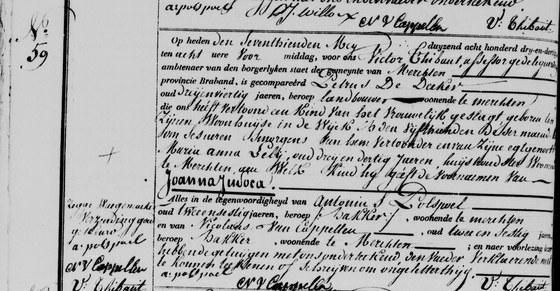 a: polspoel J. Willox N V Cappellen V: Thibaut
N°
59
Op heden den Seventhienden Mey duyzend achd honderd dry-en-dertig
ten acht ure voor middag, voor ons Victor Thibaut, assessor gedelegueerd
ambtenaer van den borgerlyken staet der gemeynte van Merchten
provincie Braband, is gecompareerd Petrus De Backer
oud dryenviertig jaeren, beroep landbouwer woonende te merchten
die ons heeft vertoond een kind van het vrouwelyk geslagt, geboren in
zynen woonhuyse in de Wyk den vyfthienden deser maand
ten sesuren smorgens van hem verklaerder en van zyne egtgenote
Maria anna oud dry en dertig Jaeren, huysvrouw woonende
te Merchten, aen Welk kind hy heeft de voornaemen van
Joanna Judoca.
Alles in de tegenwoordigheyd van Antonius Polspoel
oud tweensestig jaeren, beroep Bakker, woonende te merchten
en van Nicolaus Van Cappellen oud twee en sestig jaeren,
beroep Bakker, woonende te Merchten; en naer voorlezing
hebben de getuygen met ons onderteekend, den vader verklaerende niet
te konnen teekenen of schryven om ongeletterthyd.
a: polspoel N V Cappellen V: Thibaut
a: polspoel
N V Cappellen
V: Thibaut